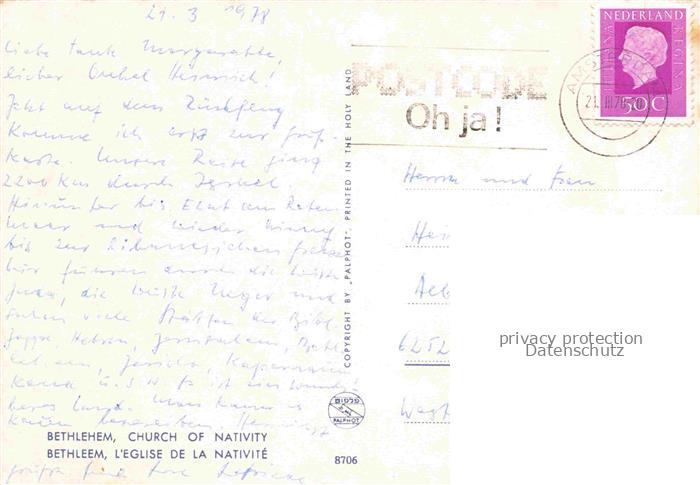 21. 3 1978
Liebe Tante Margarethe,
lieber Onkel Heinrich!
Jetzt auf dem Rückflug
komme ich erst zur Post-
karte. Unsere Reise ging
2200 Km durch Israel.
Hinunter bis Elat am Roten
Meer und wieder hinauf
bis zur Libanesischen Grenze
wir fuhren durch die Wüste
Juda, die Wüste Negev und
sahen viele Stätten der Bibel
Hebron, Jerusalem, Beth-
lehem, Jericho, Kapernaum
Kana u.s.w. Es ist ein wunder-
bares Land. Man kann es
kaum beschreiben. Herzlichst
grüßt
BETHLEHEM, CHURCH OF NATIVITY
BETHLEEM, L'EGLISE DE LA NATIVITÉ
COPYRIGHT BY „PALPHOT", PRINTED IN THE HOLY LAND
פלפוט
PALPHOT
8706
POSTCODE
Oh ja!
AMSTERDAM
21. III 78
NEDERLAND
JULIANA REGINA
50 C
Herrn und Frau
Hei
6252
privacy protection
Datenschutz